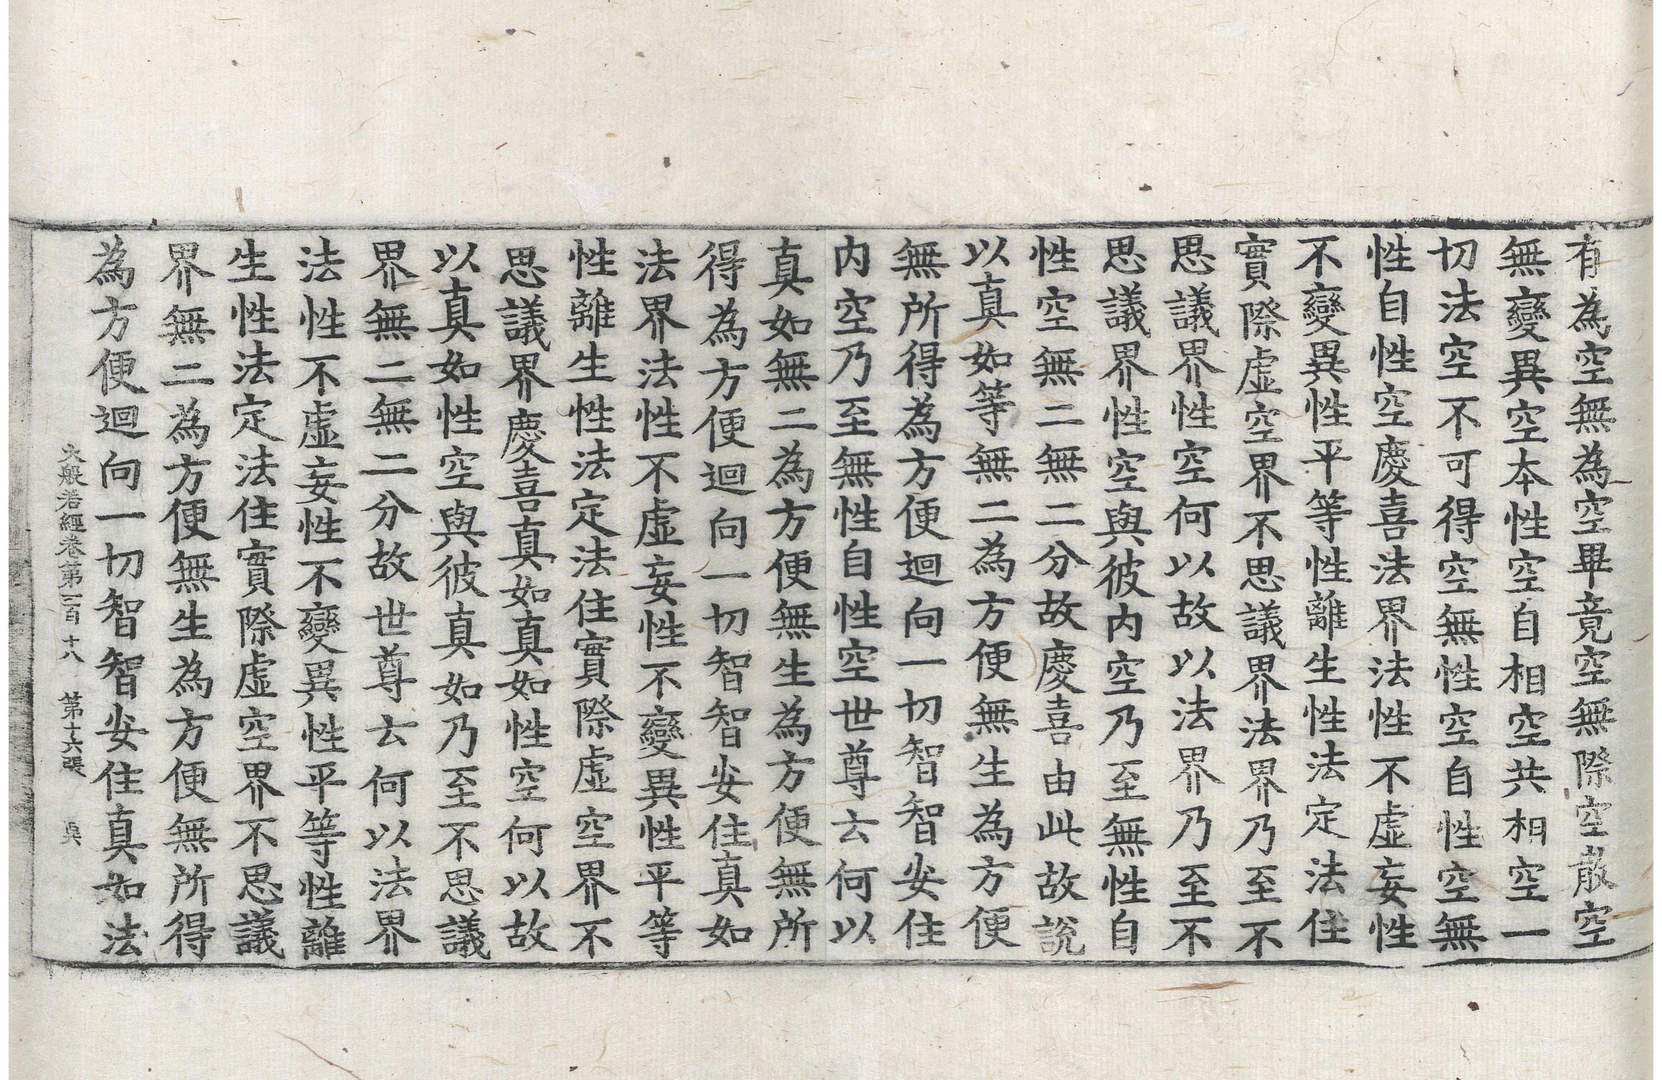 有為空無為空畢竟空無際空散空
無變異空本性空自相空共相空一
切法空不可得空無性空自性空無
性自性空慶喜法界法性不虛妄性
不變異性平等性離生性法定法住
實際虛空界不思議界法界乃至不
思議界性空何以故以法界乃至不
思議界性空與彼內空乃至無性自
性空無二無二分故慶喜由此故說
以真如等無二為方便無生為方便
無所得為方便迴向一切智智安住
內空乃至無性自性空世尊云何以
真如無二為方便無生為方便無所
得為方便迴向一切智智安住真如
法界法性不虛妄性不變異性平等
性離生性法定法住實際虛空界不
思議界慶喜真如真如性空何以故
以真如性空與彼真如乃至不思議
界無二無二分故世尊云何以法界
法性不虛妄性不變異性平等性離
生性法定法住實際虛空界不思議
界無二為方便無生為方便無所得
為方便迴向一切智智安住真如法
大般若經卷第一百十八 第十六張 昃